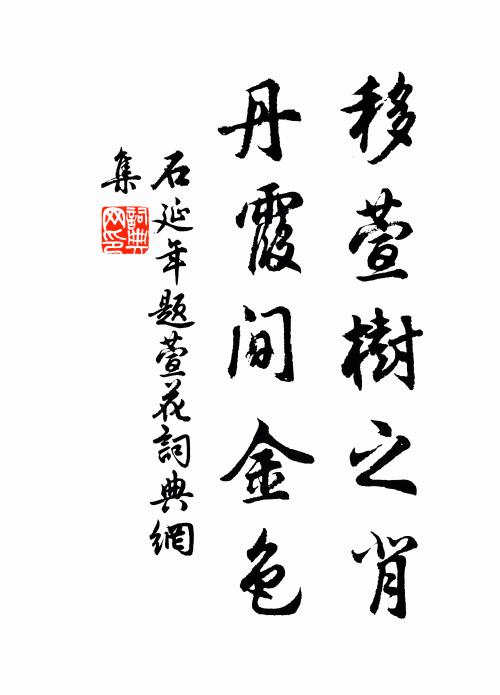 移萱樹之背
丹霞間金色
石延年題萱花詞典網
集
詞典
网印